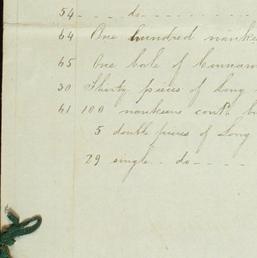 54 - - - do - - - - - - -
64 One hundred nankee
65 One bale of Cinnam
30 Thirty pieces of Long
61 100 nankeens conth b
5 double pieces of Long
29 single - do - - - -